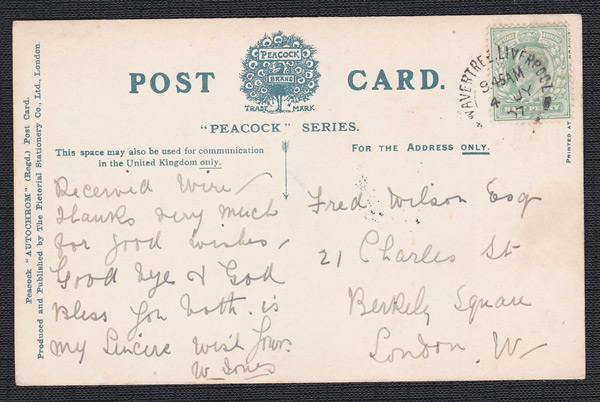 POST CARD.
PEACOCK
BRAND
TRADE MARK
"PEACOCK" SERIES.
This space may also be used for communication
in the United Kingdom only.
FOR THE ADDRESS ONLY.
Received Wire
thanks very much
for good wishes
Good bye & God
Bless you both is
my Sincere wish Yours
W Jones
Fred Wilson Esq
21 Charles St
Berkely Square
London. W
WAVERTREE. LIVERPOOL
9.45AM
4 JY
07
Peacock "AUTOCHROM" (Regd.) Post Card.
Produced and Published by The Pictorial Stationery Co., Ltd., London.
PRINTED AT